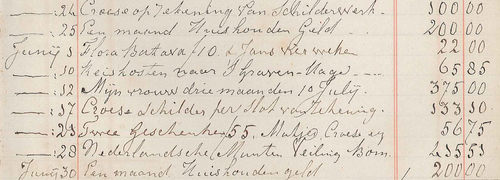 —„ 24 Croese op rekening van Schilderwerk. 100 00
—„ 25 Een maand Huishouden Geld 200 00
Junij 1 Flora Batava f 10. & Jans Kerweken 22 00
—„ 10 Reiskosten naar S Graven-Hage --- 65 85
—„ 12 Mijn vrouw drie maanden 10 Julij. 375 00
—„ 17 Croese Schilder per Slot van rekening. 133 10
—„ 23 Twee Geschenken 55, Matje Croese 56 75
—„ 28 Nederlandsche Munten Veiling Bom. 455 55
Junij 30 Een maand Huishouden geld 200 00